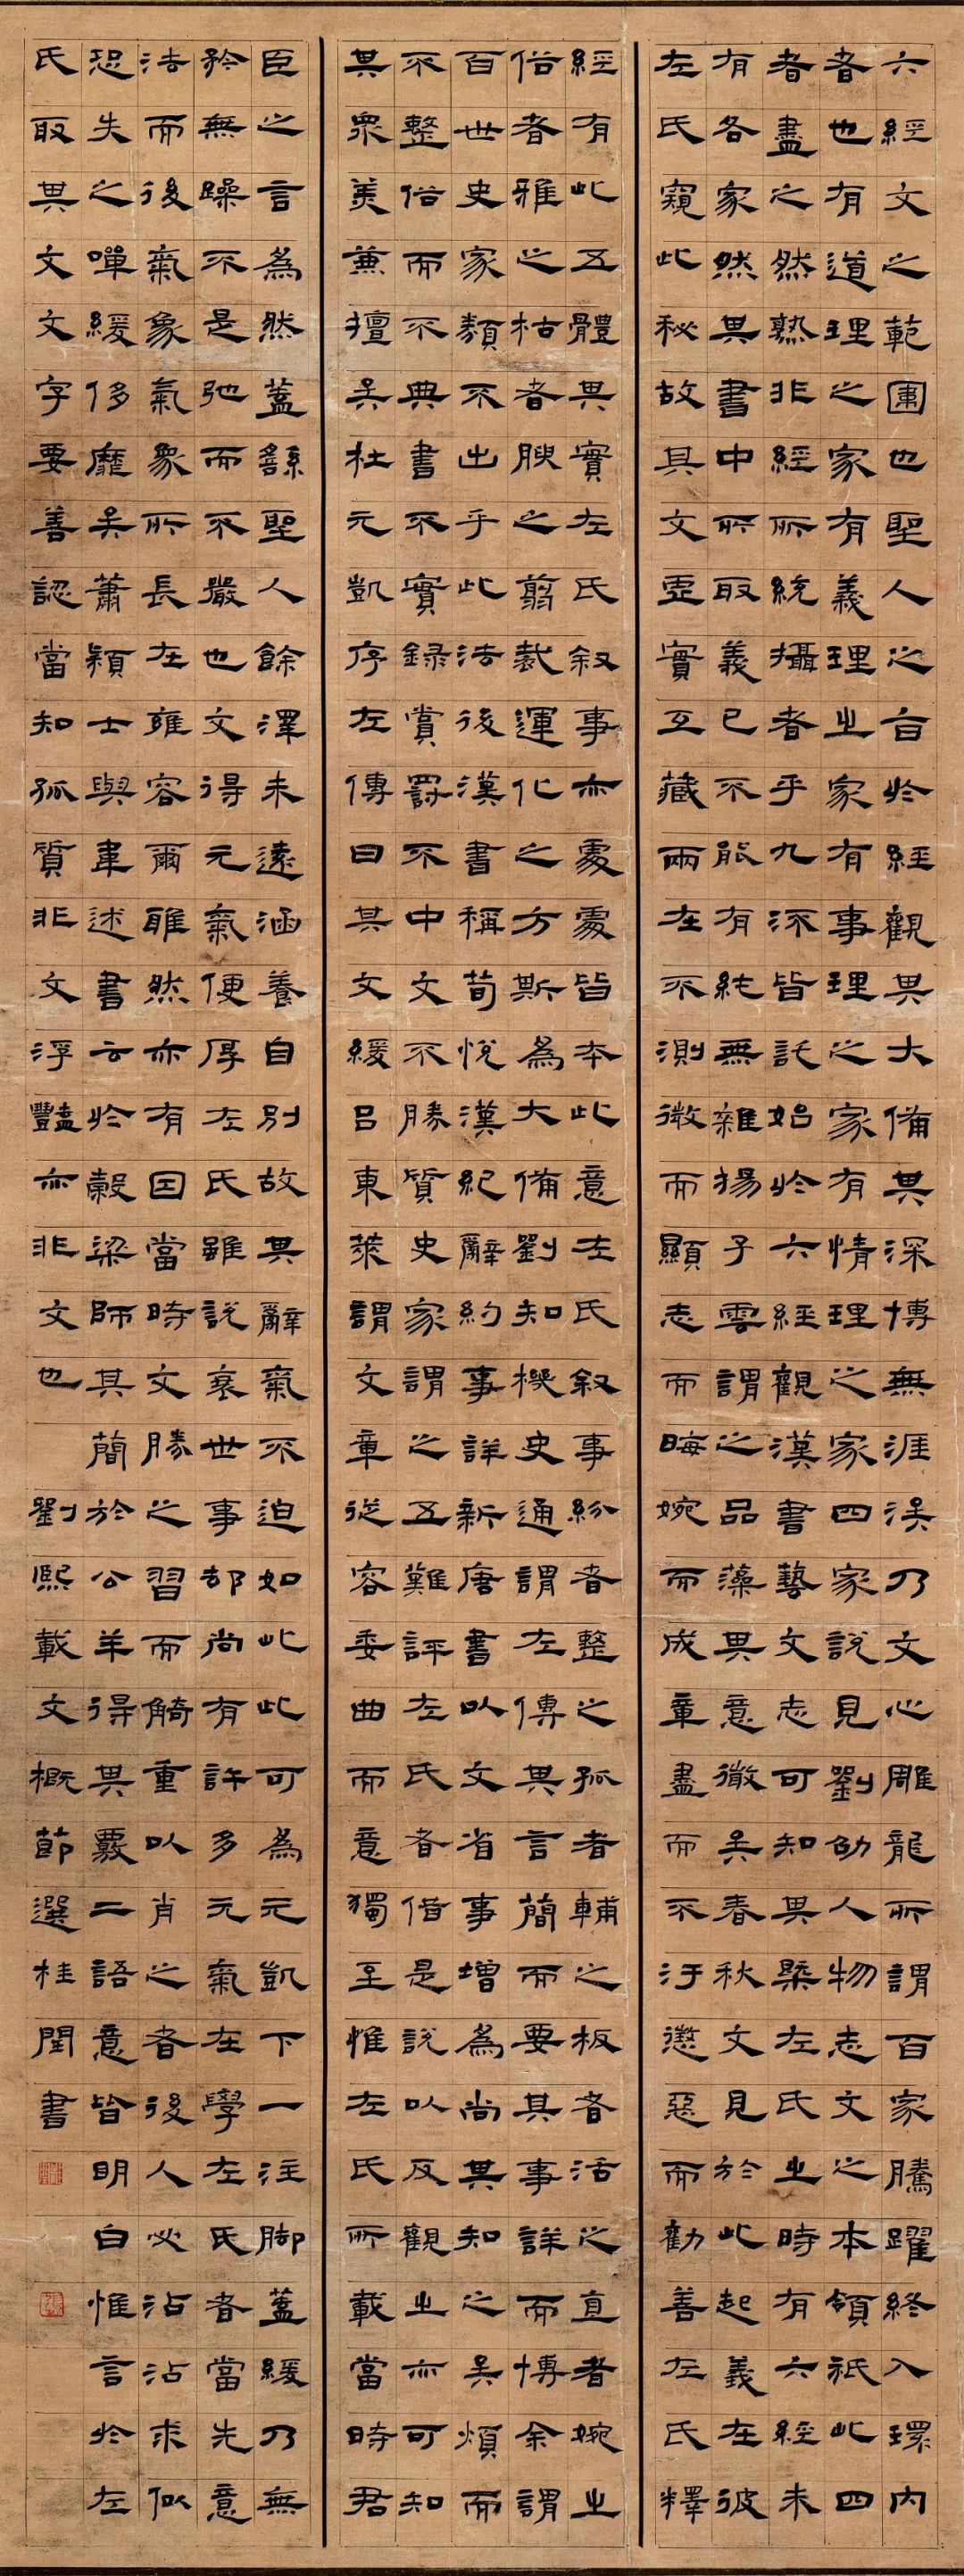 六經文之範圍也聖人之旨於經觀其大備其深博無涯涘乃文心雕龍所謂百家騰躍終入環內
者也有道理之家有義理之家有事理之家有情理之家四家說見劉劭人物志文之本領祇此四
者盡之然孰非經所統攝者乎九流皆託始於六經觀漢書藝文志可知其槩左氏之時有六經未
有各家然其書中所取義已不能有純無雜揚子雲謂之品藻其意微矣春秋文見於此起義在彼
左氏窺此秘故其文虛實互藏兩在不測微而顯志而晦婉而成章盡而不汙懲惡而勸善左氏釋
經有此五體其實左氏叙事亦處處皆本此意左氏叙事紛者整之孤者輔之板者活之直者婉之
俗者雅之枯者腴之剪裁運化之方斯為大備劉知機史通謂左傳其言簡而要其事詳而博余謂
百世史家類不出乎此法後漢書稱荀悅漢紀辭約事詳新唐書以文省事增為尚其知之矣煩而
不整俗而不典書不實録賞罰不中文不勝質史家謂之五難評左氏者借是說以反觀之亦可知
其眾美兼擅矣杜元凱序左傳曰其文緩呂東萊謂文章從容委曲而意獨至惟左氏所載當時君
臣之言為然蓋繇聖人餘澤未遠涵養自別故其辭氣不迫如此此可為元凱下一注脚蓋緩乃無
矜無躁不是弛而不嚴也文得元氣便厚左氏雖說衰世事却尚有許多元氣在學左氏者當先意
法而後氣象氣象所長在雍容爾雅然亦有因當時文勝之習而觭重以肖之者後人必沾沾求似
恐失之嘽緩侈靡矣蕭穎士與韋述書云於穀梁師其簡於公羊得其覈二語意皆明白惟言於左
氏取其文文字要善認當知孤質非文浮豔亦非文也 劉熙載文概節選桂閏書